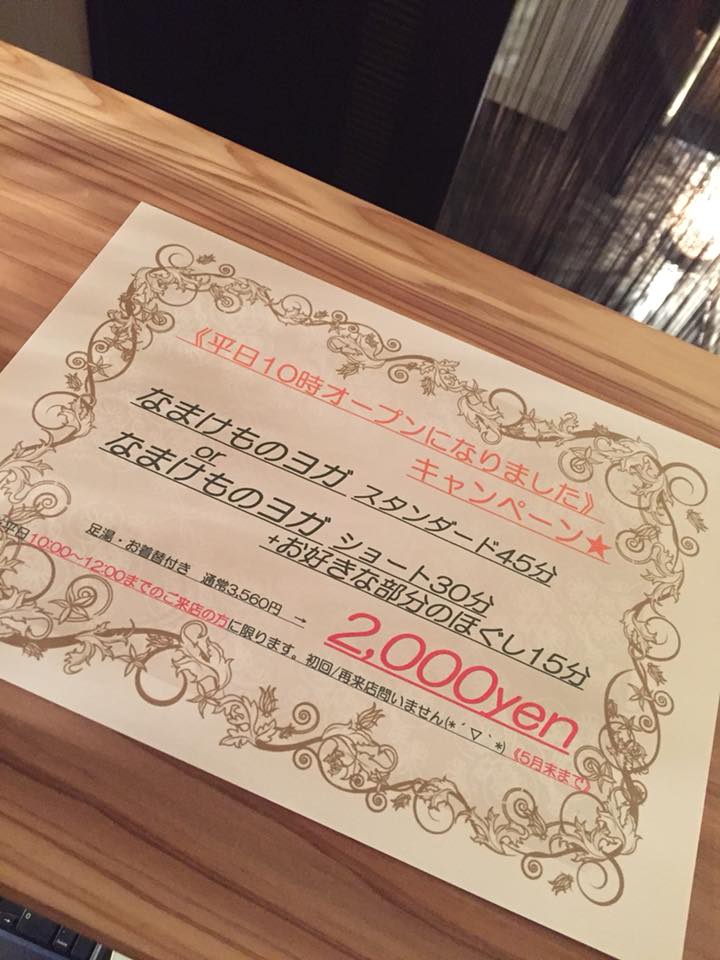 《平日10時オープンになりました》
キャンペーン★
なまけものヨガ スタンダード45分
or
なまけものヨガ ショート30分
+お好きな部分のほぐし15分
足湯・お着替付き 通常3,560円 → 2,000yen
平日10:00~12:00までのご来店の方に限ります。初回/再来店問いません(*´▽`*)《5月末まで》